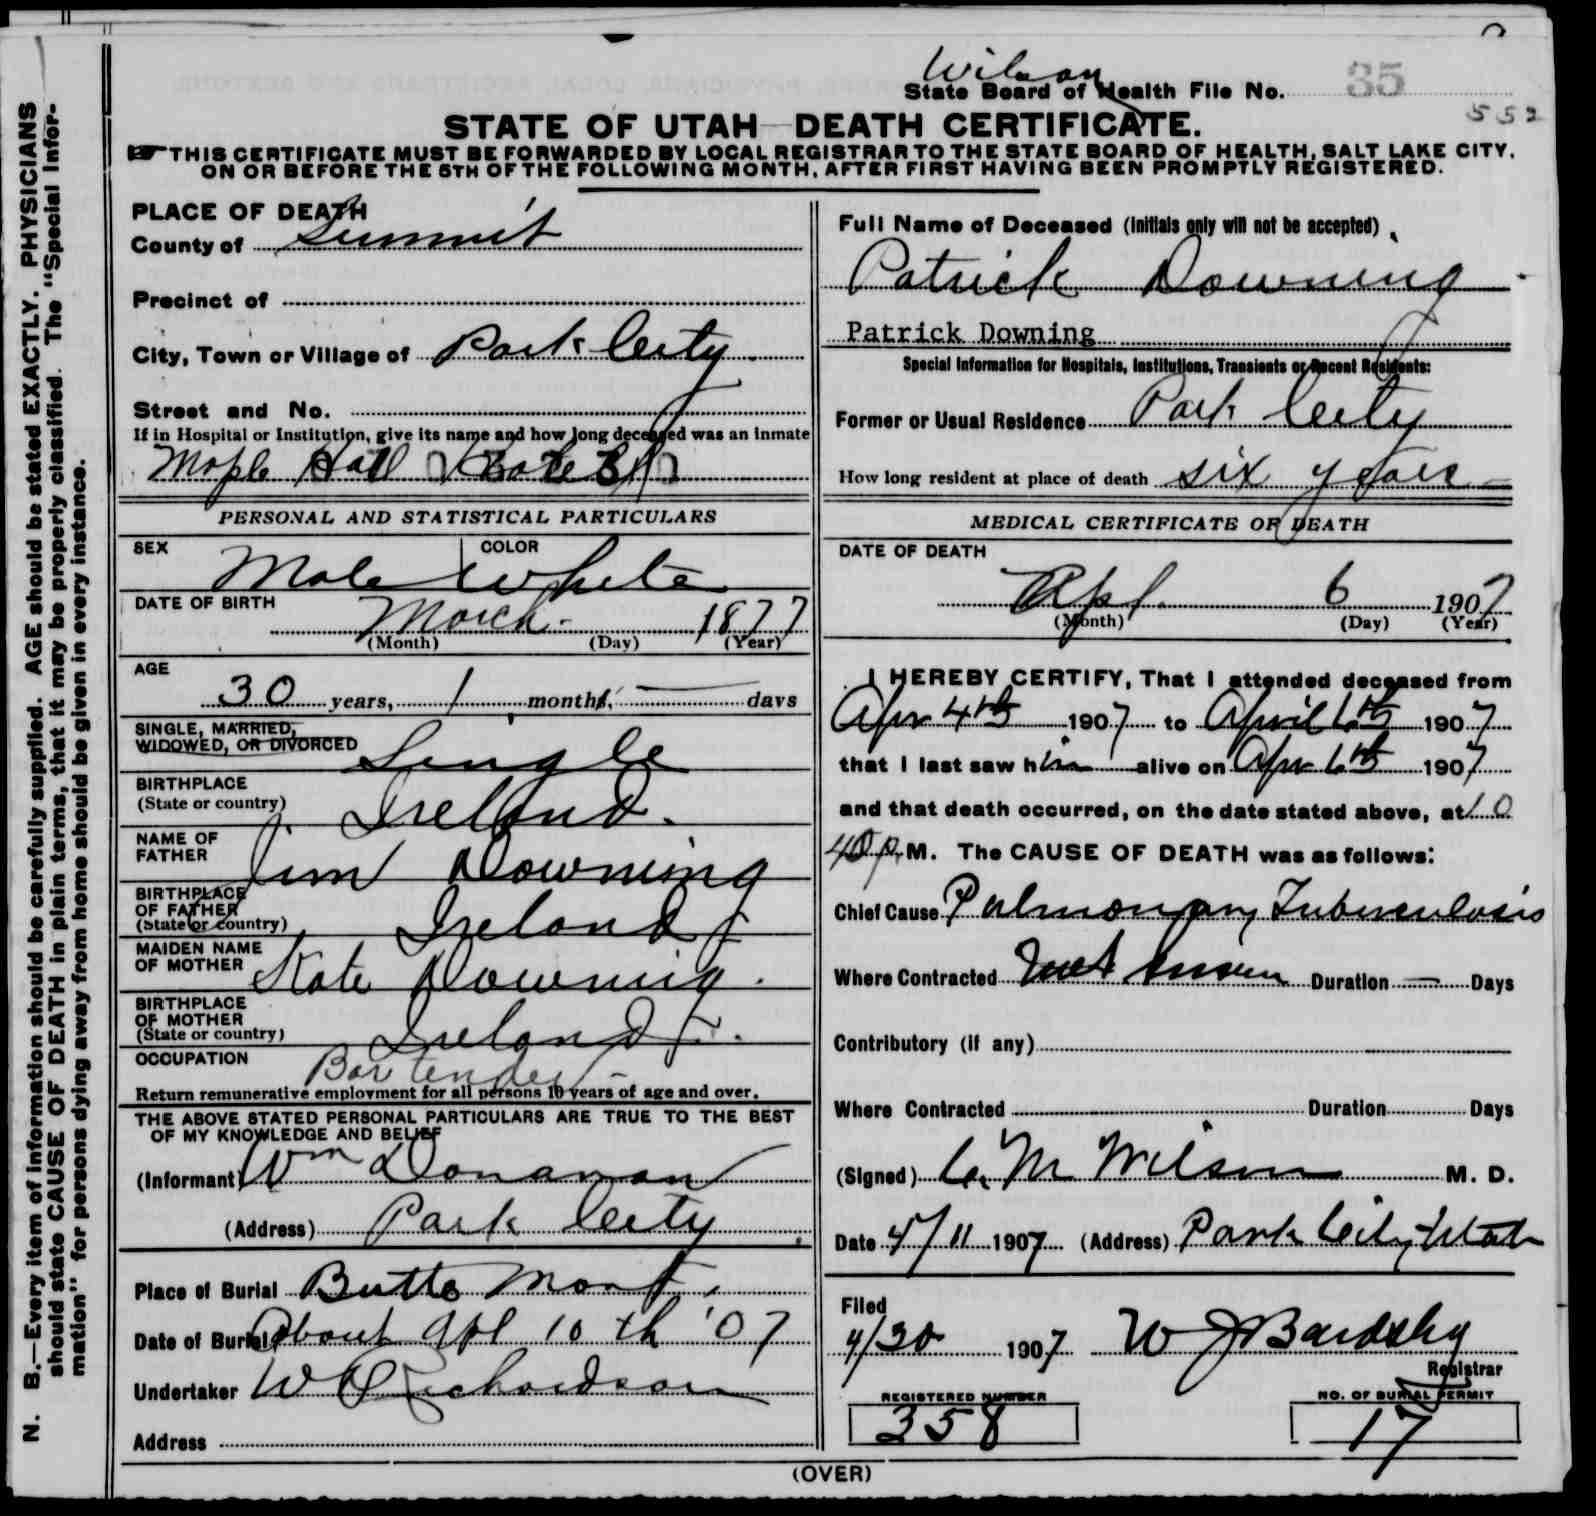 Wilson
State Board of Health File No. 35
552
STATE OF UTAH—DEATH CERTIFICATE.
THIS CERTIFICATE MUST BE FORWARDED BY LOCAL REGISTRAR TO THE STATE BOARD OF HEALTH, SALT LAKE CITY,
ON OR BEFORE THE 5TH OF THE FOLLOWING MONTH, AFTER FIRST HAVING BEEN PROMPTLY REGISTERED.
N. B.—Every item of information should be carefully supplied. AGE should be stated EXACTLY. PHYSICIANS
should state CAUSE OF DEATH in plain terms, that it may be properly classified. The "Special Infor-
mation" for persons dying away from home should be given in every instance.
PLACE OF DEATH
County of Summit
Precinct of
City, Town or Village of Park City
Street and No.
If in Hospital or Institution, give its name and how long deceased was an inmate
Maple Hall Hotel
PERSONAL AND STATISTICAL PARTICULARS
SEX Male COLOR White
DATE OF BIRTH March 1877
(Month) (Day) (Year)
AGE
30 years, 1 months, — days
SINGLE, MARRIED,
WIDOWED, OR DIVORCED Single
BIRTHPLACE
(State or country) Ireland.
NAME OF
FATHER Jim Downing
BIRTHPLACE
OF FATHER
(State or country) Ireland
MAIDEN NAME
OF MOTHER Kate Downing.
BIRTHPLACE
OF MOTHER
(State or country) Ireland
OCCUPATION Bartender
Return remunerative employment for all persons 10 years of age and over.
THE ABOVE STATED PERSONAL PARTICULARS ARE TRUE TO THE BEST
OF MY KNOWLEDGE AND BELIEF
(Informant) Wm Donavan
(Address) Park City
Place of Burial Butte Mont,
Date of Burial About Apl 10th '07
Undertaker W Richardson
Address
Full Name of Deceased (Initials only will not be accepted)
Patrick Downing
Patrick Downing
Special Information for Hospitals, Institutions, Transients or Recent Residents:
Former or Usual Residence Park City
How long resident at place of death six years
MEDICAL CERTIFICATE OF DEATH
DATE OF DEATH
Apl. 6 1907
(Month) (Day) (Year)
I HEREBY CERTIFY, That I attended deceased from
Apr 4th 1907 to April 6th 1907
that I last saw him alive on Apr 6th 1907
and that death occurred, on the date stated above, at 10
40 p. M. The CAUSE OF DEATH was as follows:
Chief Cause Pulmonary Tuberculosis
Where Contracted Not Known Duration — Days
Contributory (if any)
Where Contracted Duration Days
(Signed) C. M Wilson M. D.
Date 4/11 1907 (Address) Park City Utah
Filed
4/30 1907 W J Bardsley
Registrar
REGISTERED NUMBER
358
NO. OF BURIAL PERMIT
17
(OVER)